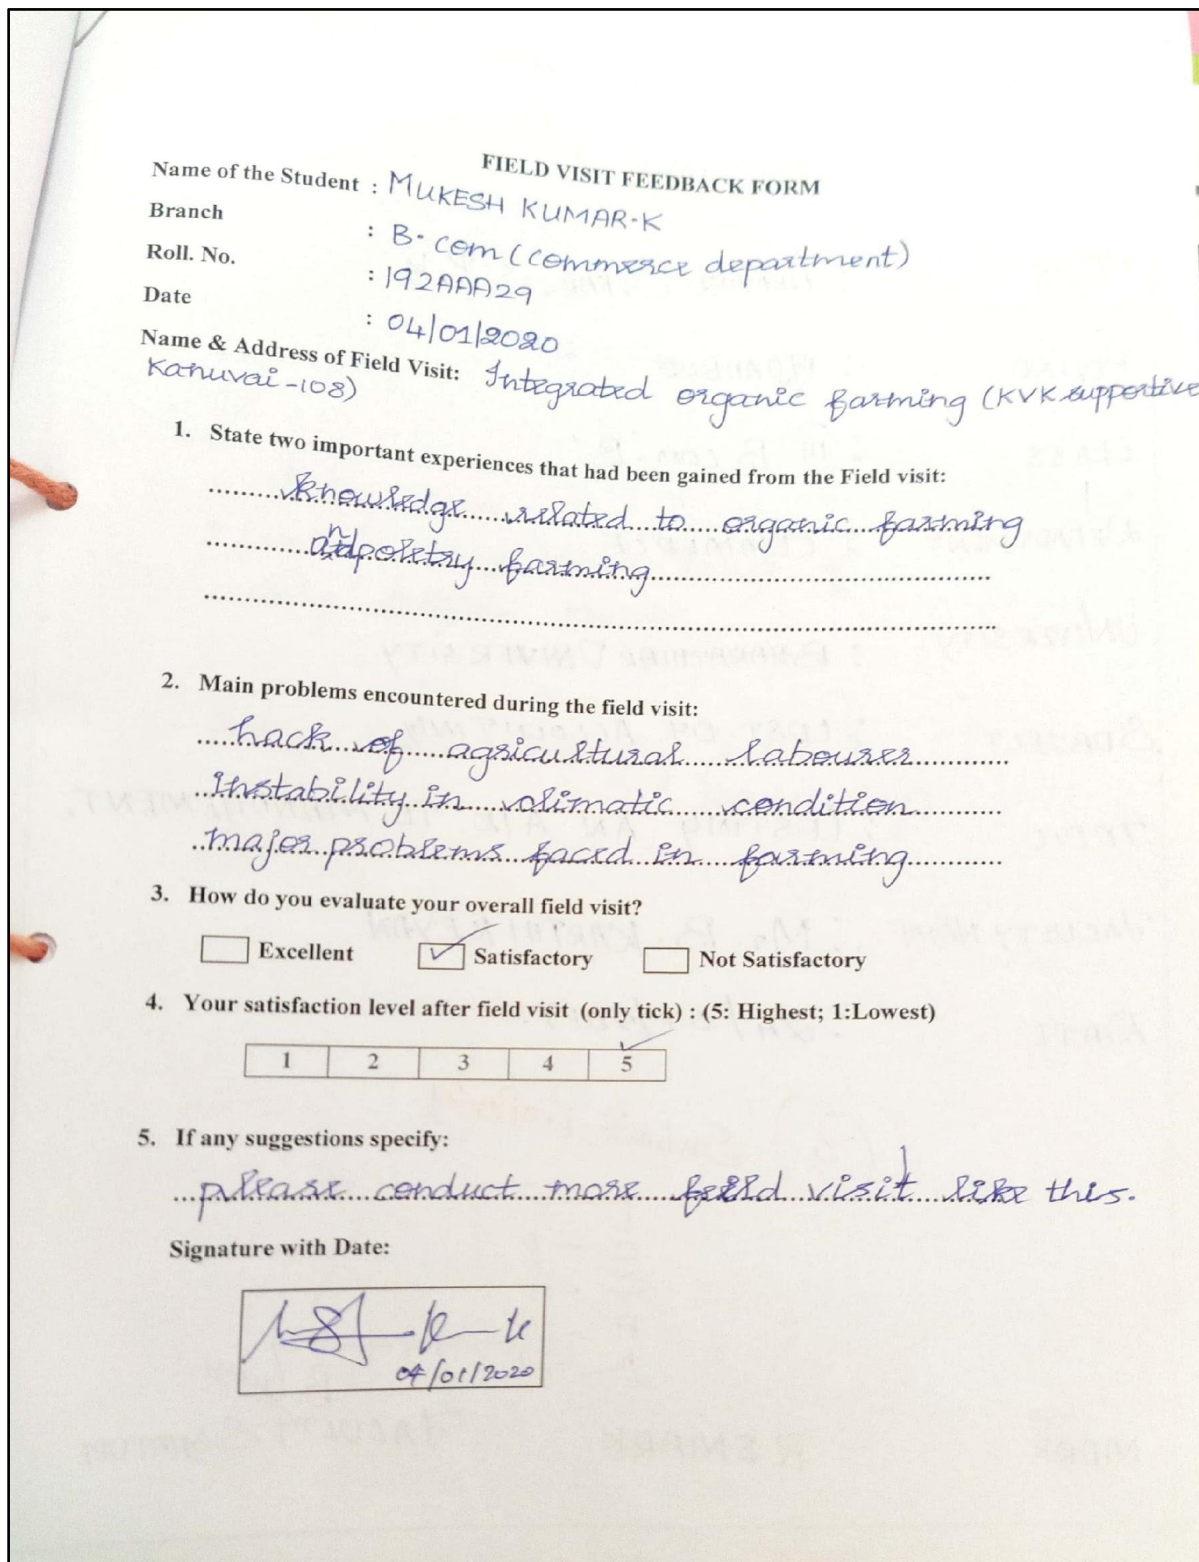 FIELD VISIT FEEDBACK FORM
Name of the Student : MUKESH KUMAR-K
Branch : B. com (commerce department)
Roll. No. : 192AAA29
Date : 04/01/2020
Name & Address of Field Visit: Integrated organic farming (KVK supportive
Kanuvai-108)
1. State two important experiences that had been gained from the Field visit:
knowledge related to organic farming
and poletry farming
2. Main problems encountered during the field visit:
Lack of agricultural labourer
Instability in climatic condition
major problems faced in farming
3. How do you evaluate your overall field visit?
Excellent Satisfactory Not Satisfactory
4. Your satisfaction level after field visit (only tick) : (5: Highest; 1:Lowest)
1 2 3 4 5
5. If any suggestions specify:
please conduct more feild visit like this.
Signature with Date:
04/01/2020